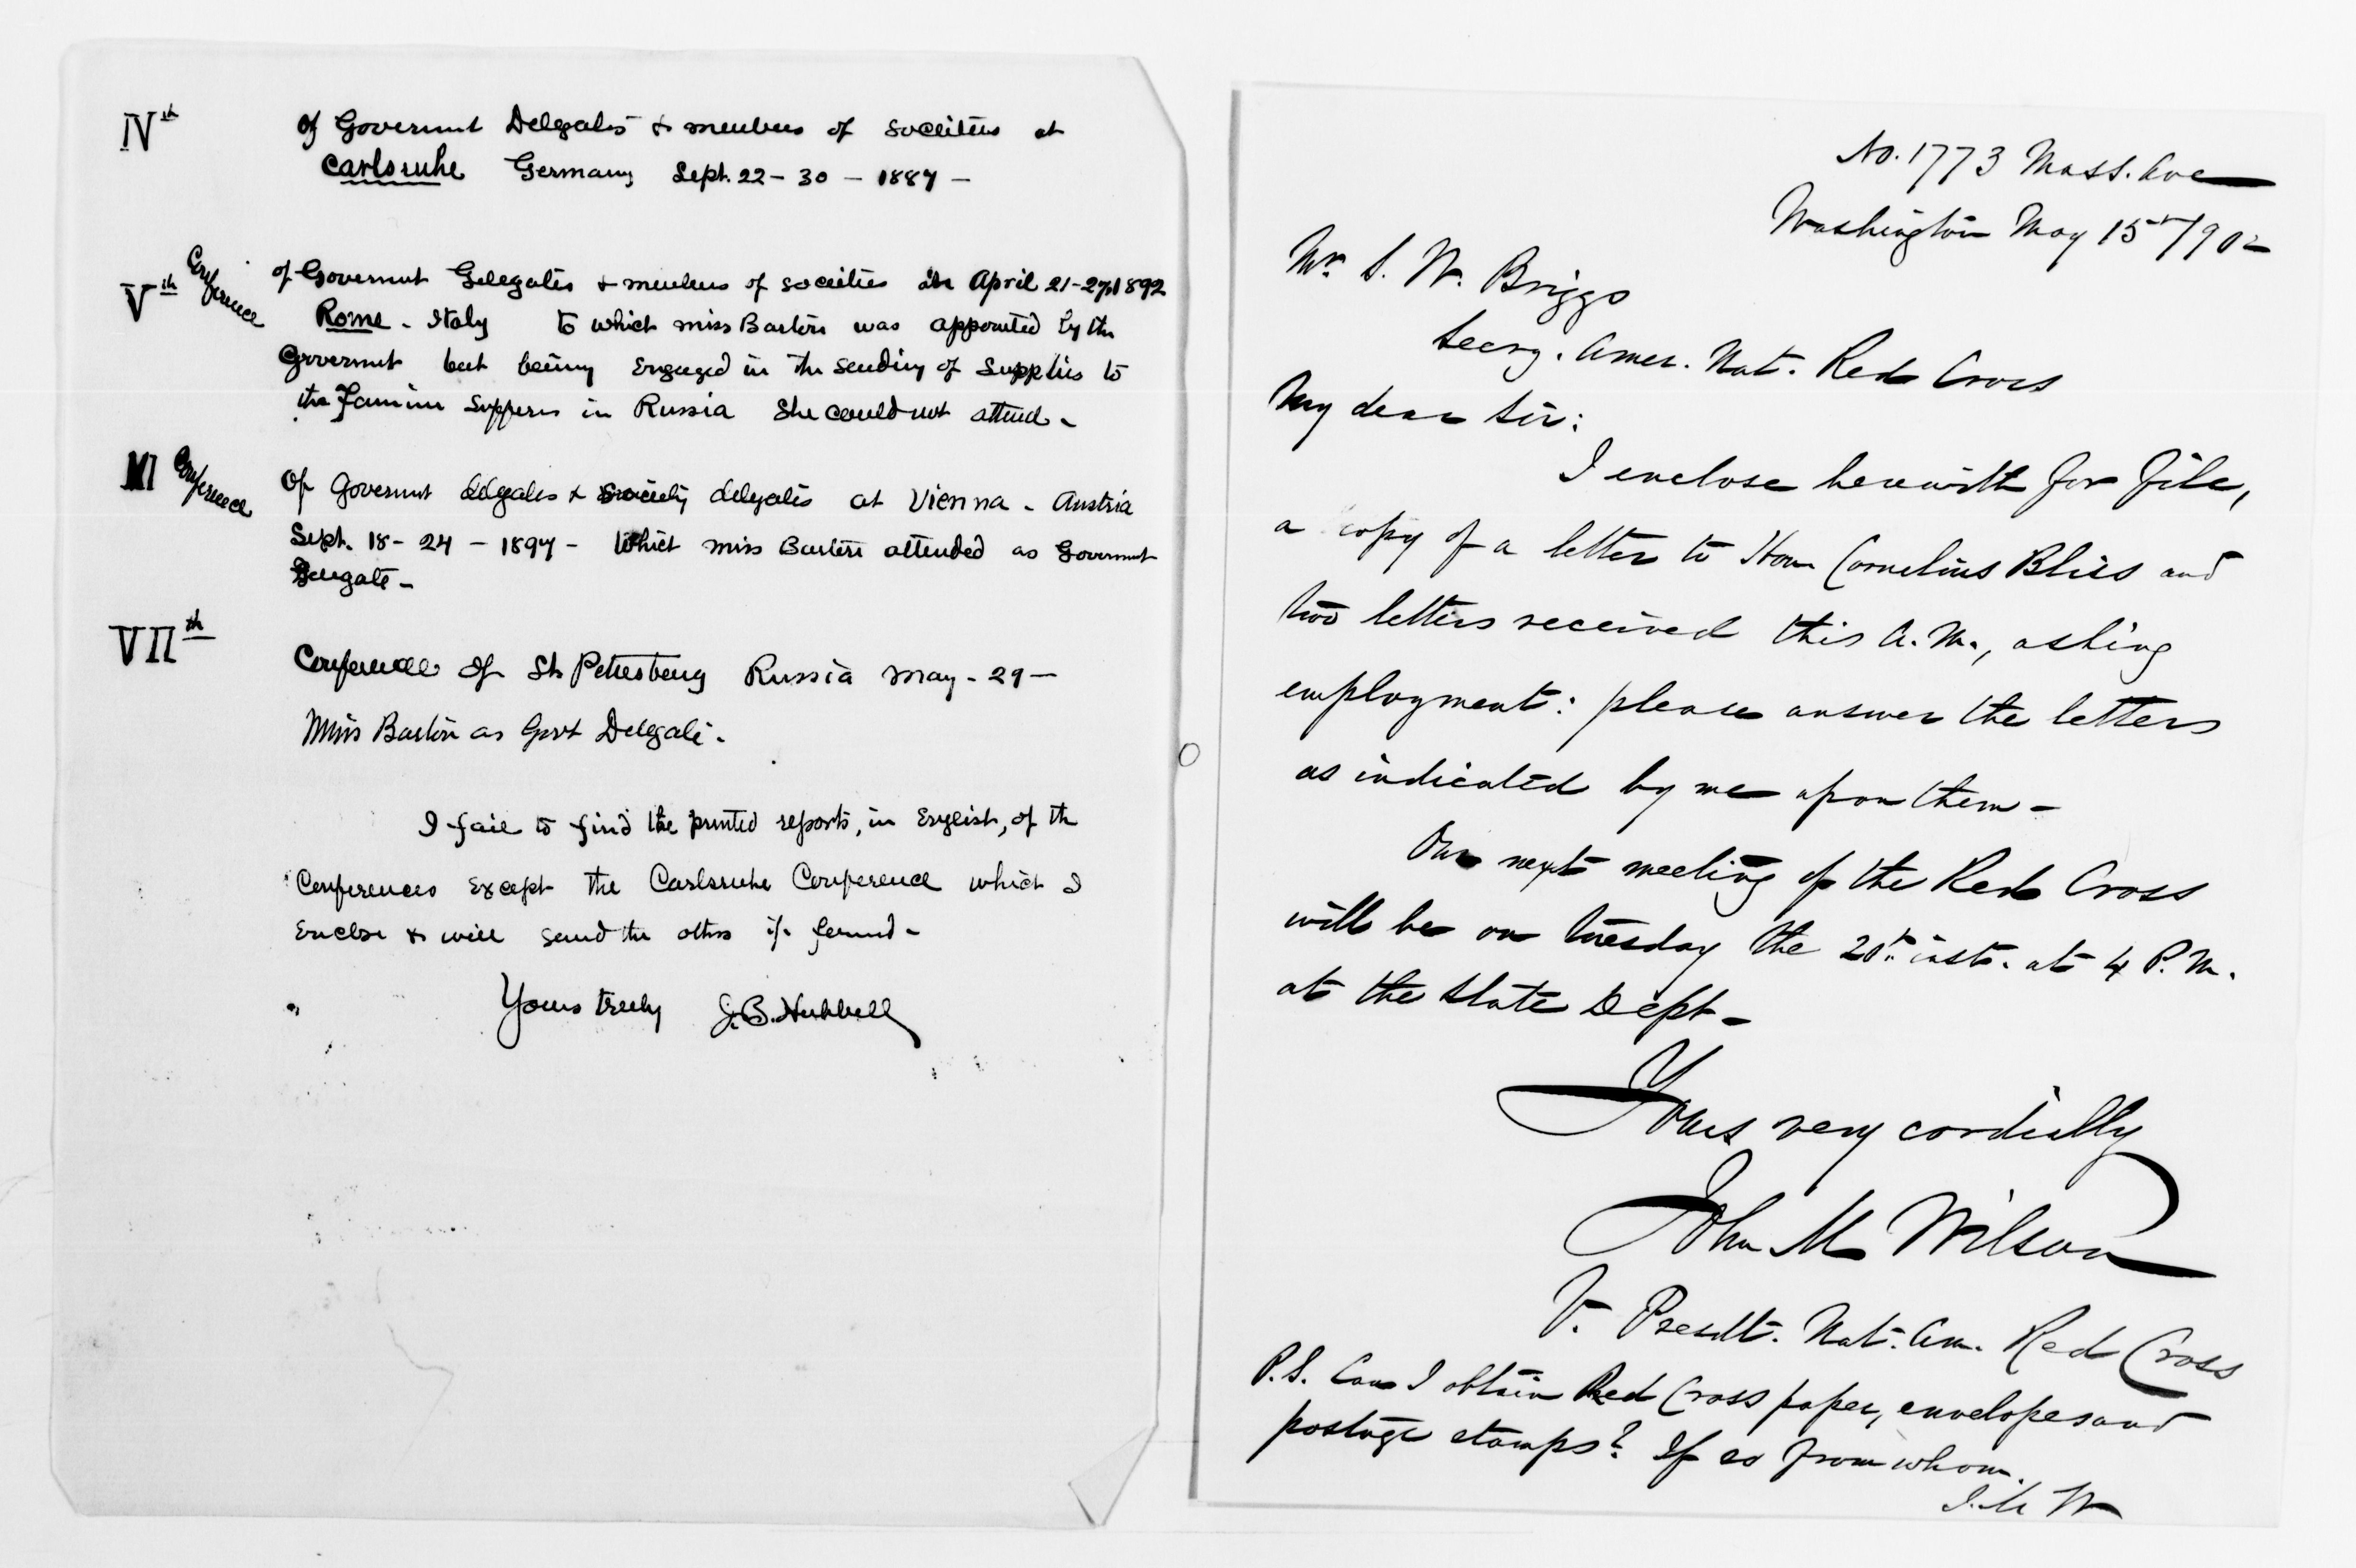 IVth
of Governmt Delegates & members of societies at
Carlsruhe Germany Sept. 22 - 30 - 1887 -
Vth Conference
of Governmt Delegates & members of societies in April 21-27, 1892
Rome - Italy to which miss Barton was appointed by the
Governmt but being Engaged in the sending of Supplies to
the Famine Sufferers in Russia She could not attend -
VI Conference
Of Governmt delegates & society delegates at Vienna - Austria
Sept. 18 - 24 - 1897 - Which miss Barton attended as Governmt
Delegate -
VIIth
Conference of St Petersburg Russia may - 29 -
Miss Barton as Govt Delegate.
I fail to find the printed reports, in English, of the
Conferences except the Carlsruhe Conference which I
Enclose & will send the others if found -
Yours truly J. B. Hubbell
No. 1773 Mass. Ave
Washington May 15th/902
Mr. S. W. Briggs
Secry. Amer. Nat. Red Cross
My dear Sir:
I enclose herewith for file,
a copy of a letter to Hon Cornelius Bliss and
two letters received this A.M., asking
employment: please answer the letters
as indicated by me upon them -
Our next meeting of the Red Cross
will be on Tuesday the 20th inst. at 4 P.M.
at the State Dept -
Yours very cordially
John M Wilson
V. Presdt. Nat. Am. Red Cross
P.S. Can I obtain Red Cross paper, envelopes and
postage stamps? If so from whom.
J. M W